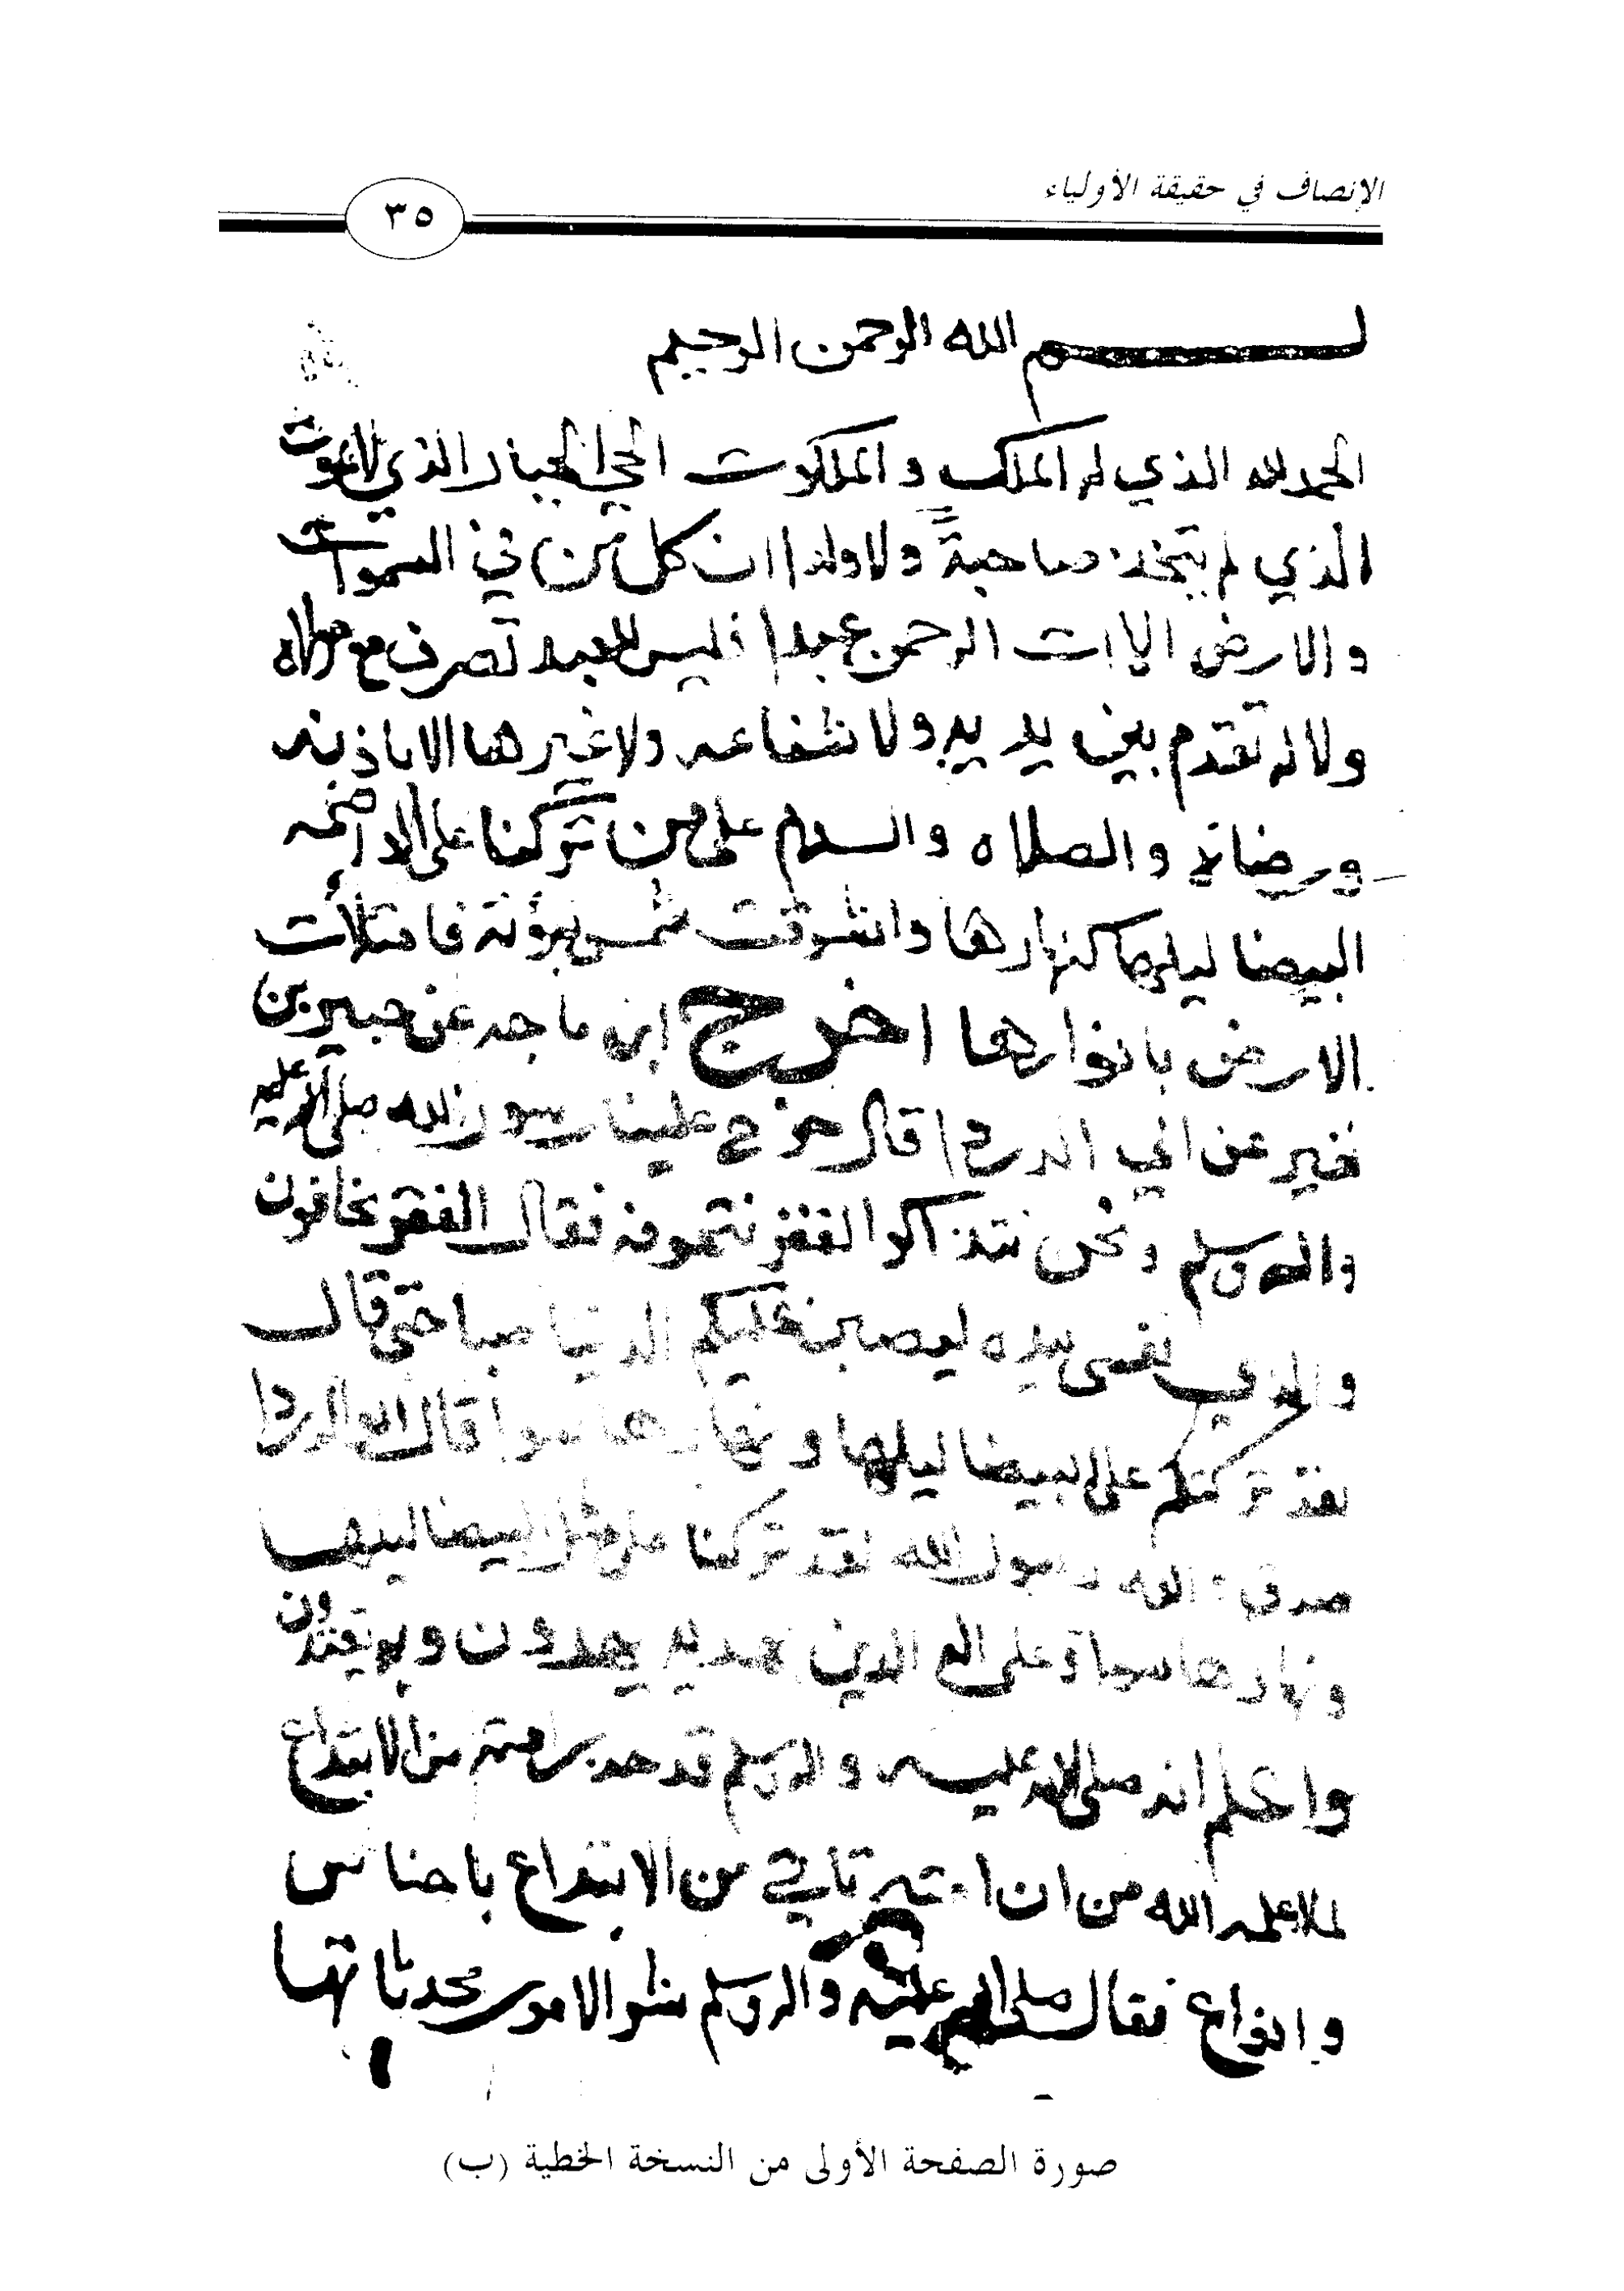 الإنصاف في حقيقة الأولياء
٣٥
بسم الله الرحمن الرحيم
الحمد لله الذي له الملك والملكوت الحي الجبار الذي لا يموت
الذي لم يتخذ صاحبة ولا ولدا ان كل من في السموات
والارض الا ات الرحمن عبدا فليس للعبد تصرف مع مولاه
ولا له تقدم بين يديه ولا شفاعه ولا غيرها الا باذنه
ورضاته والصلاه والسلام على من تركنا على الواضحه
البيضا ليلها كنهارها واشرقت شمس نبؤته فامتلأت
الارض بانوارها اخرج ابن ماجه عن جبير بن
نفير عن ابي الدردا قال خرج علينا رسول الله صلى الله عليه
واله وسلم ونحن نتذاكر الفقر نتخوفه فقال الفقر تخافون
والذي نفسي بيده ليصبن عليكم الدنيا صبا حتى قال
لقد تركتكم على البيضا ليلها ونهارها سوا قال ابو الدردا
صدق الله رسول الله لقد تركنا على مثل البيضا ليلها
ونهارها سوا وعلى اله الذين بهديه يهدون وبه يقتدون
واعلم انه صلى الله عليه واله وسلم قد حذر امته من الابتداع
لما اعلمه الله من ان امته تاتي من الابتداع باجناس
وانواع فقال صلى الله عليه واله وسلم شر الامور محدثاتها
صورة الصفحة الأولى من النسخة الخطية (ب)